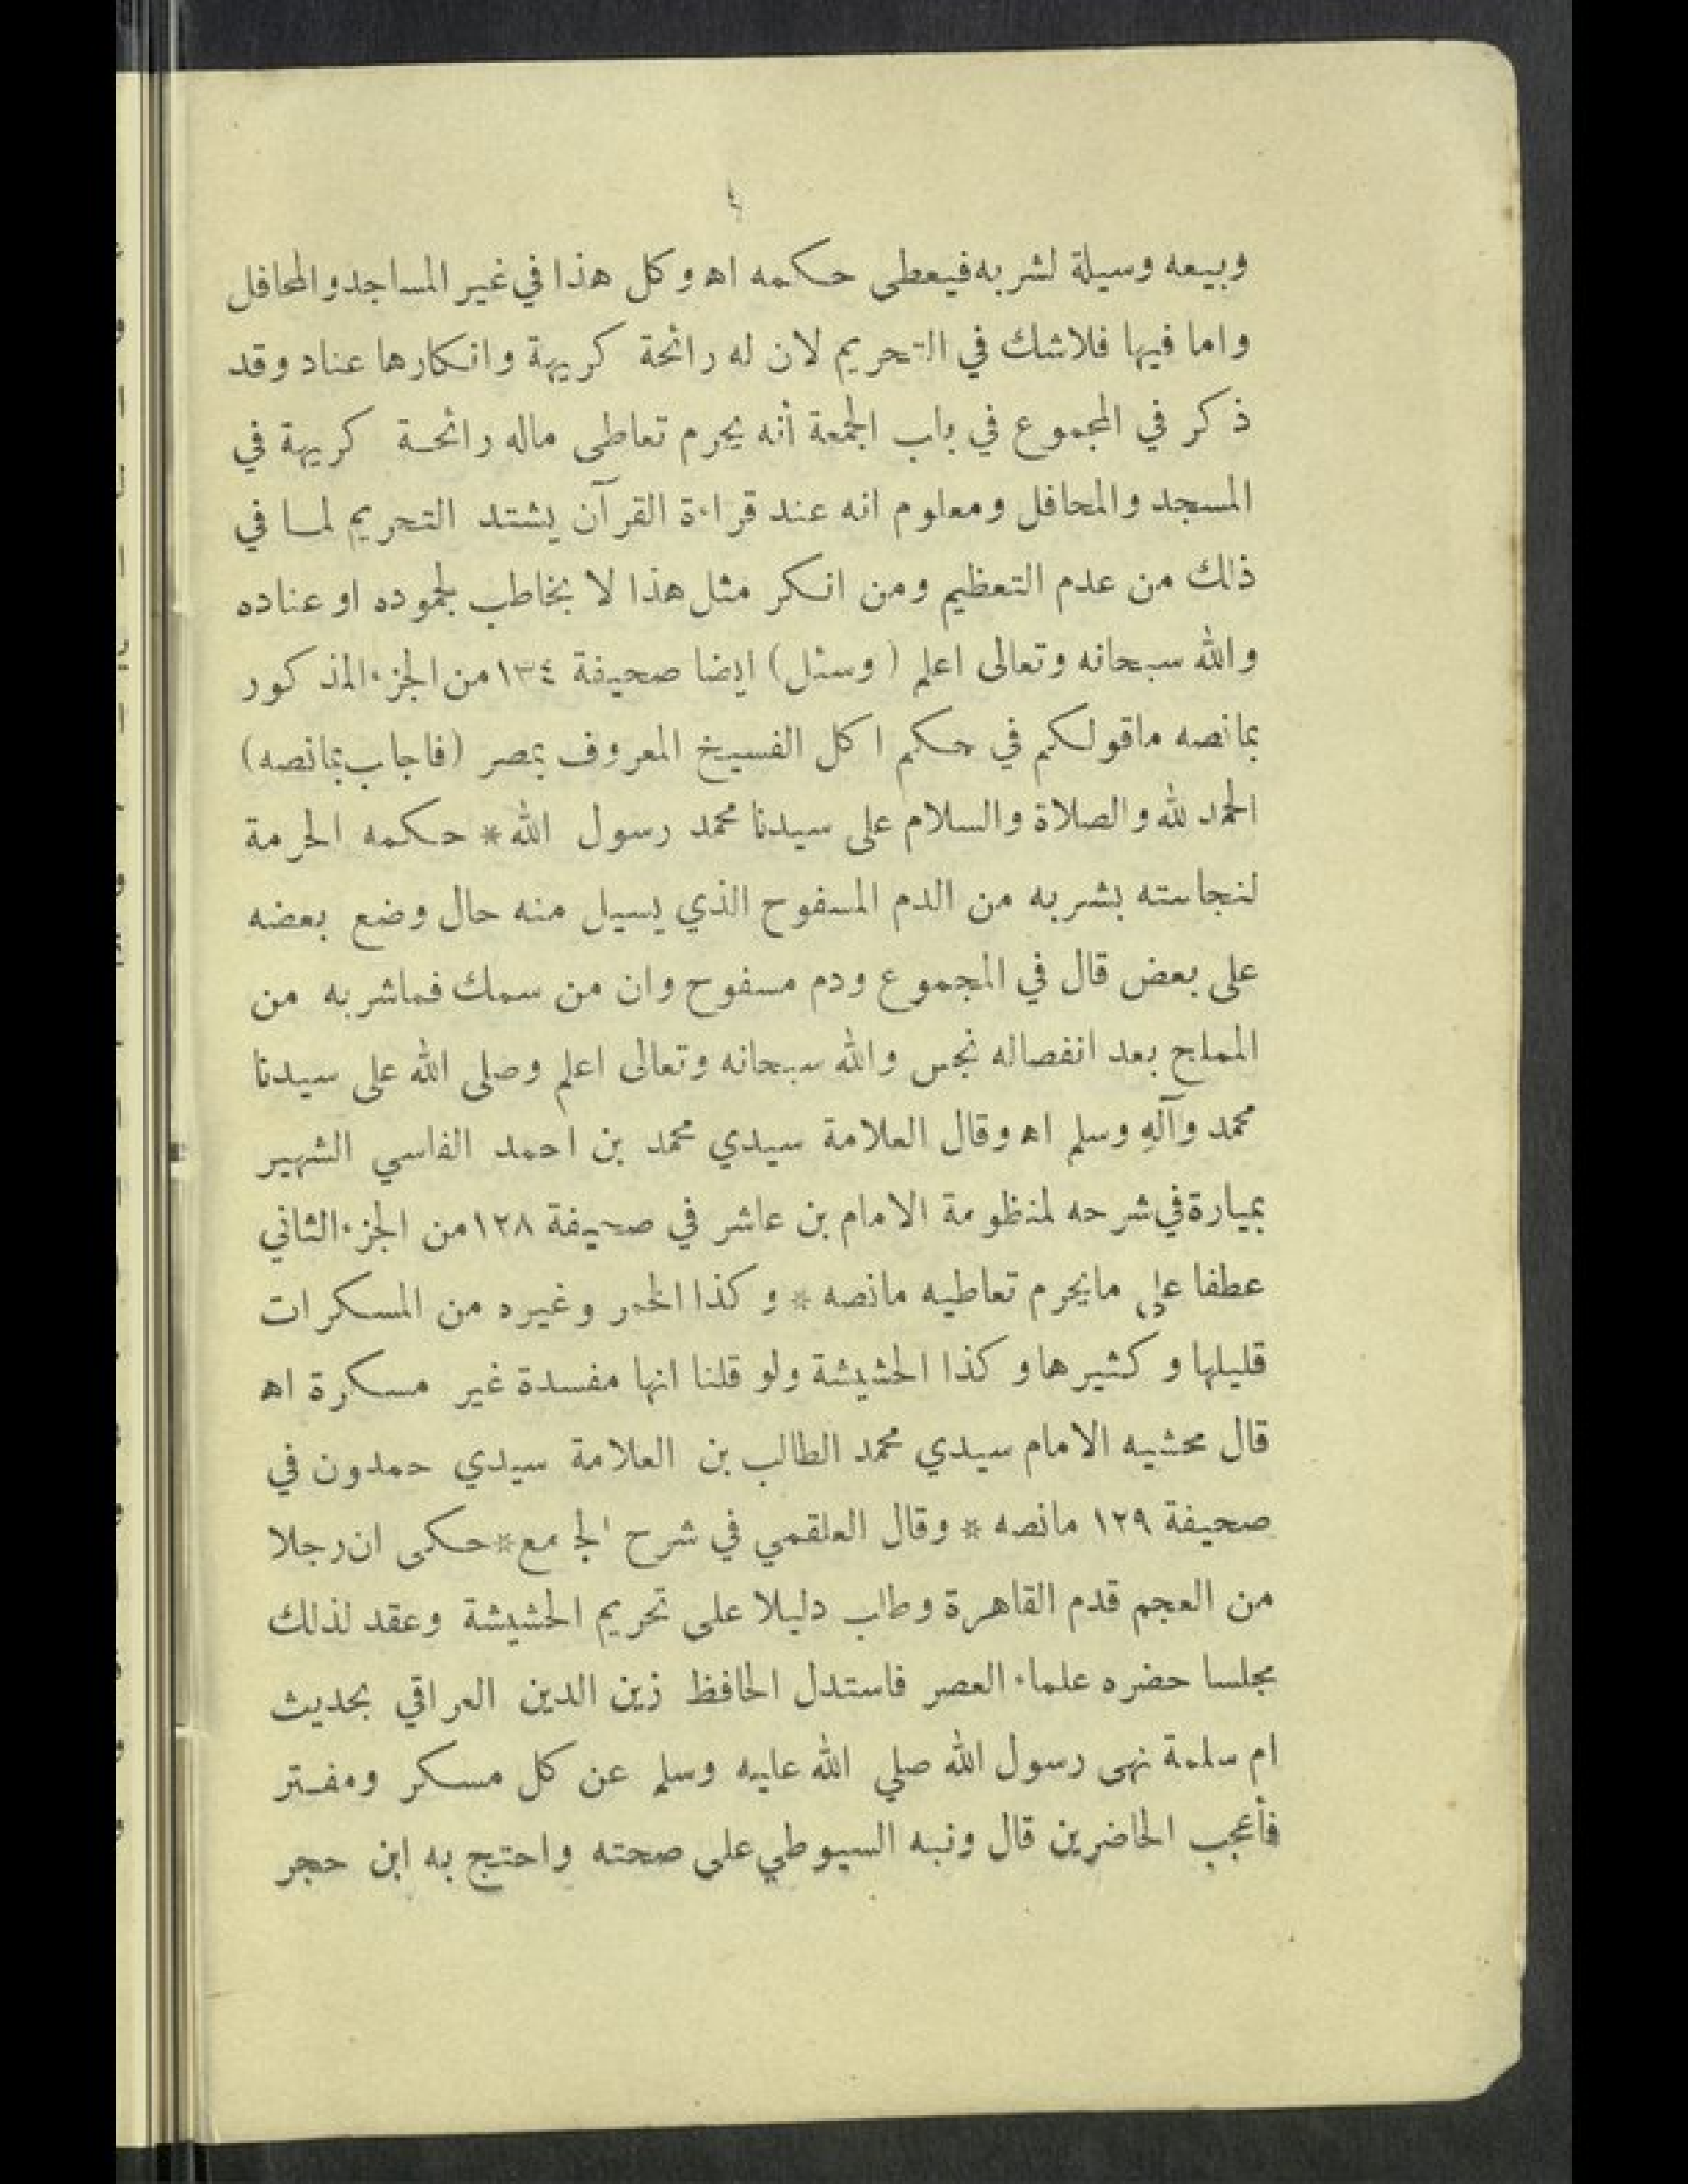 ٤
وبيعه وسيلة لشربه فيعطى حكمه اه وكل هذا في غير المساجد والمحافل
واما فيها فلاشك في التحريم لان له رائحة كريهة وانكارها عناد وقد
ذكر في المجموع في باب الجمعة أنه يحرم تعاطى ماله رائحة كريهة في
المسجد والمحافل ومعلوم انه عند قراءة القرآن يشتد التحريم لما في
ذلك من عدم التعظيم ومن انكر مثل هذا لا يخاطب لجموده او عناده
والله سبحانه وتعالى اعلم ( وسئل ) ايضا صحيفة ١٣٤ من الجزء المذكور
بمانصه ماقولكم في حكم اكل الفسيخ المعروف بمصر (فاجاب بمانصه)
الحمد لله والصلاة والسلام على سيدنا محمد رسول الله * حكمه الحرمة
لنجاسته بشربه من الدم المسفوح الذي يسيل منه حال وضع بعضه
على بعض قال في المجموع ودم مسفوح وان من سمك فماشربه من
المملح بعد انفصاله نجس والله سبحانه وتعالى اعلم وصلى الله على سيدنا
محمد وآلهِ وسلم اه وقال العلامة سيدي محمد بن احمد الفاسي الشهير
بميارة في شرحه لمنظومة الامام بن عاشر في صحيفة ١٢٨ من الجزء الثاني
عطفا على مايحرم تعاطيه مانصه * وكذا الخمر وغيره من المسكرات
قليلها وكثيرها وكذا الحشيشة ولو قلنا انها مفسدة غير مسكرة اه
قال محشيه الامام سيدي محمد الطالب بن العلامة سيدي حمدون في
صحيفة ١٢٩ مانصه * وقال العلقمي في شرح الجامع * حكى ان رجلا
من العجم قدم القاهرة وطلب دليلا على تحريم الحشيشة وعقد لذلك
مجلسا حضره علماء العصر فاستدل الحافظ زين الدين العراقي بحديث
ام سلمة نهى رسول الله صلي الله عليه وسلم عن كل مسكر ومفتر
فأعجب الحاضرين قال ونبه السيوطي على صحته واحتج به ابن حجر